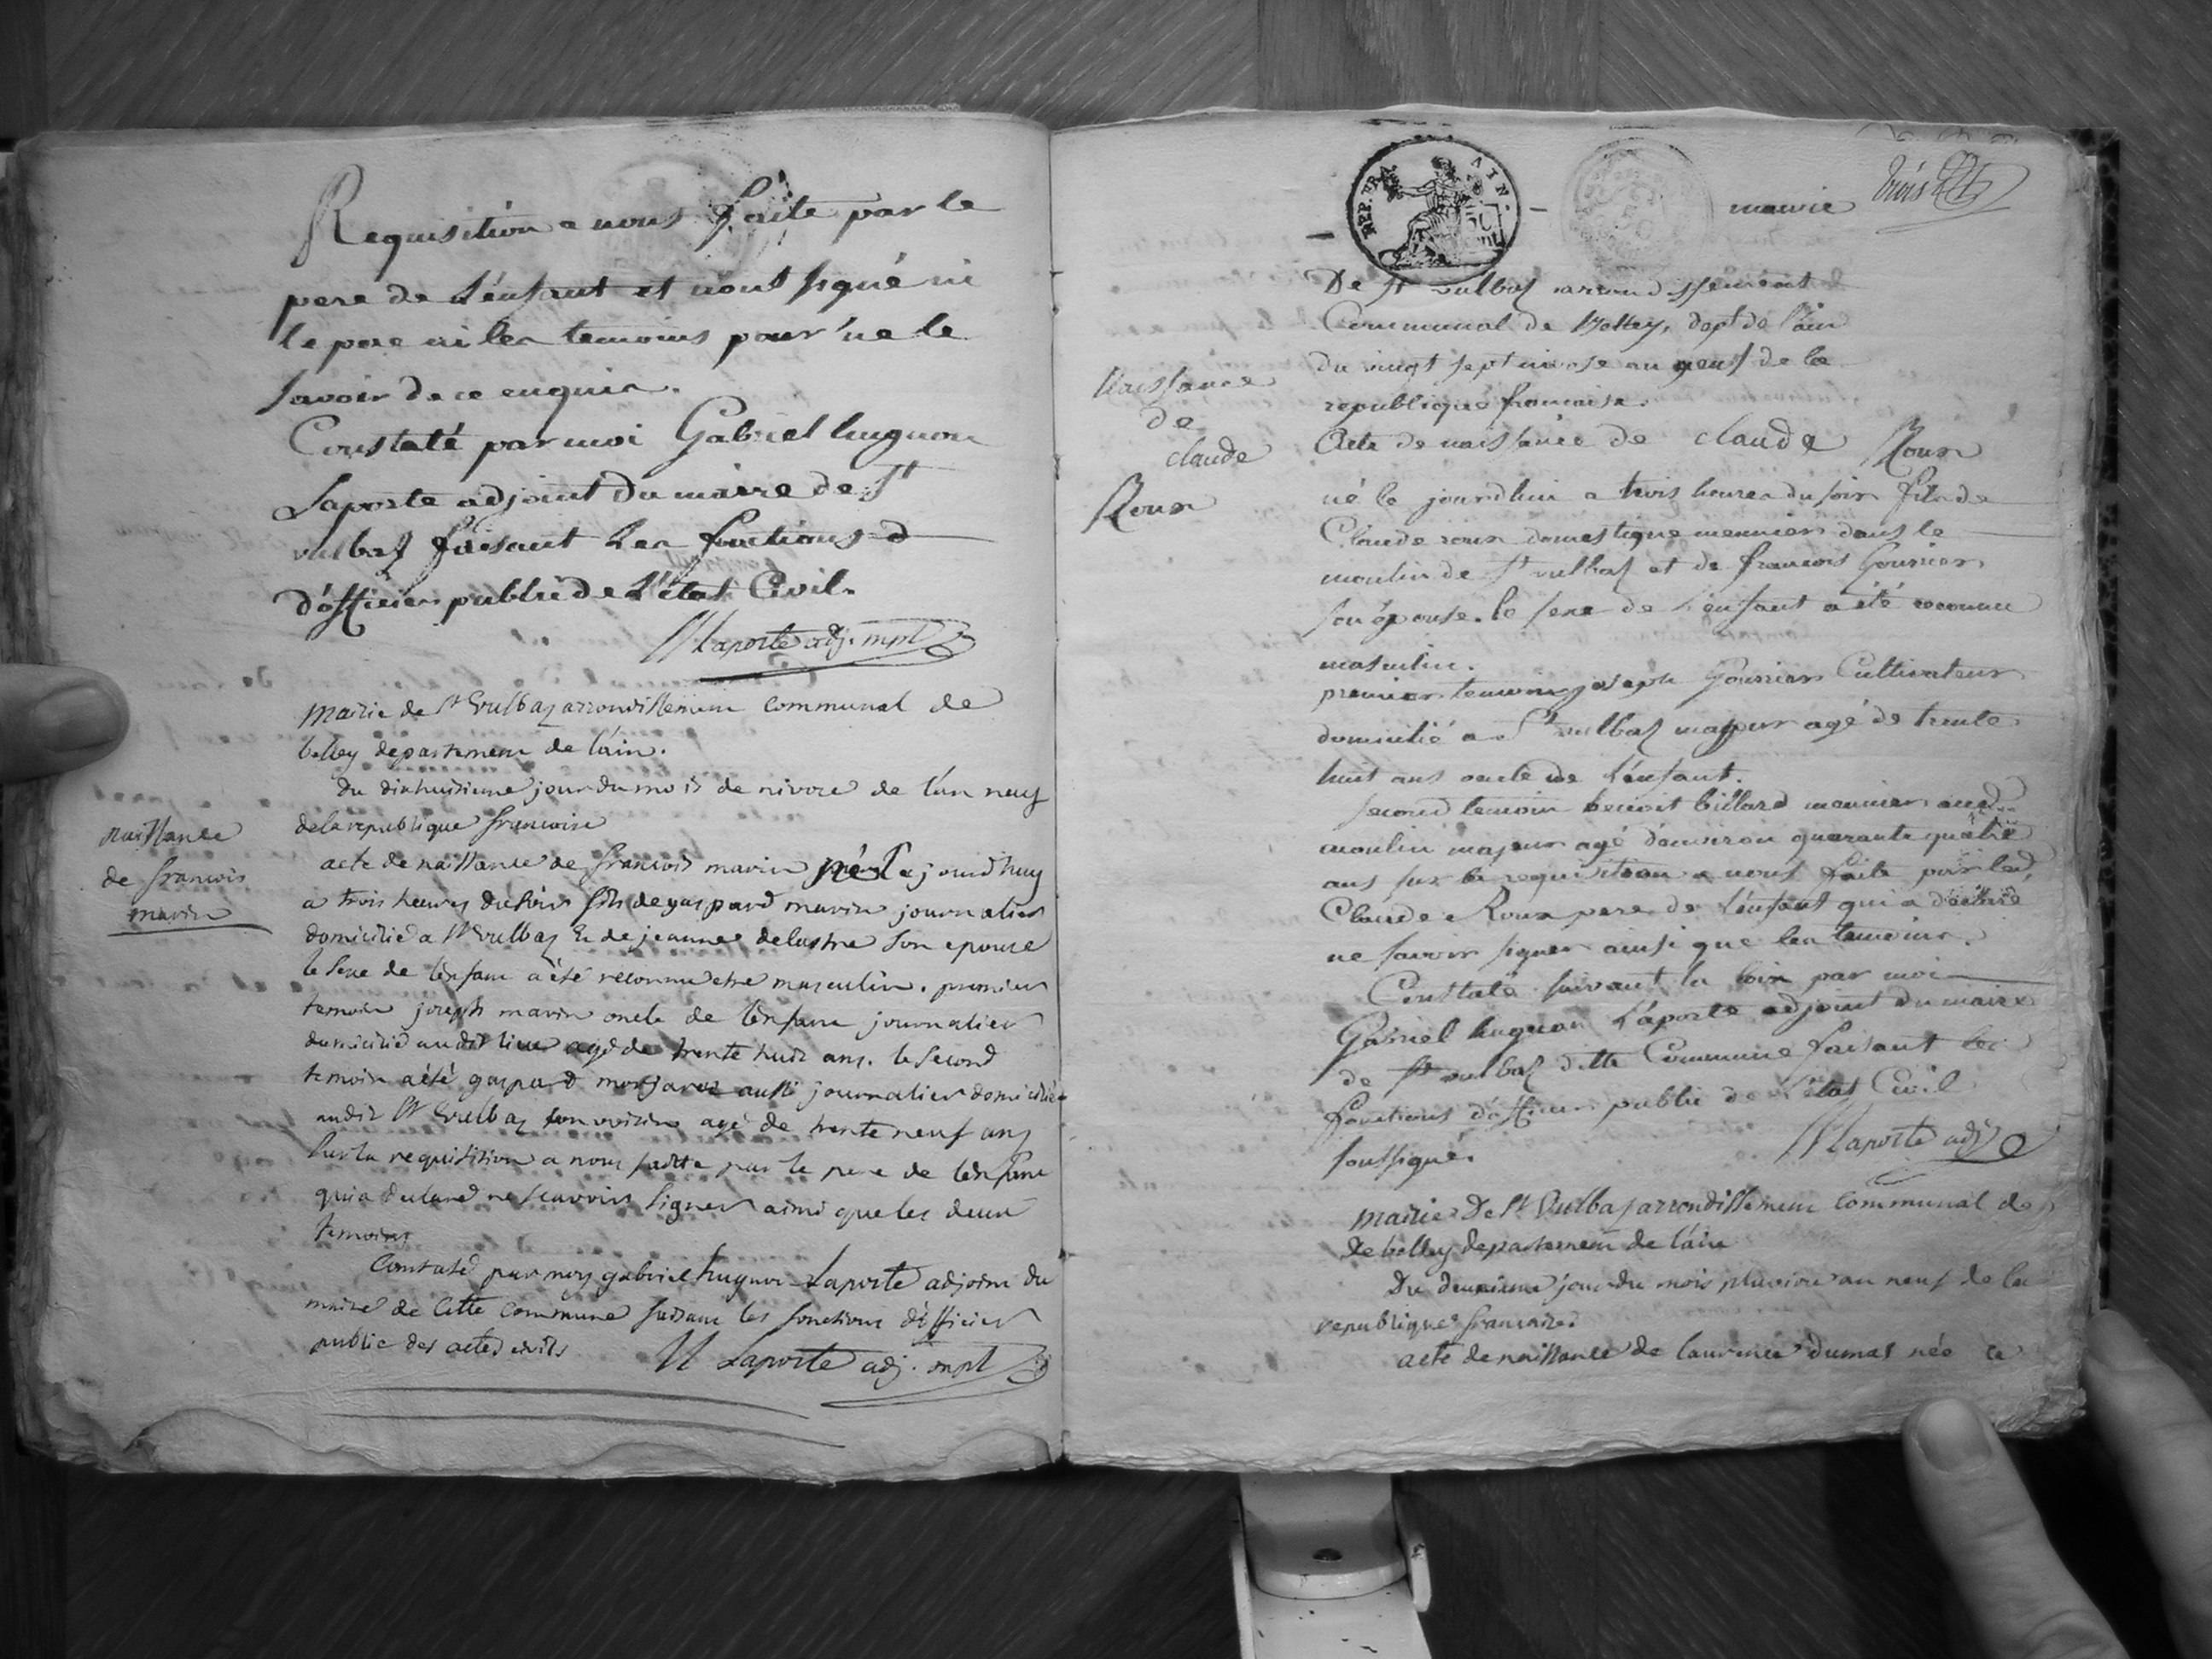 Requisition a nous faite par le
pere de L'enfant et nous signé ni
le pere ni les temoins pour ne le
savoir de ce enquis.
Constaté par moi Gabriel hugnon
Laporte adjoint du maire de St
vulbas faisant Les fonctions d
d'officier public de L'état Civil.
Laporte adj. mpl
mairie de St Vulbaz arrondissement communal de
belley departement de l'ain.
du dixhuitieme jour du mois de nivose de l'an neuf
de la republique francoise
naissance
de francois
marin
acte de naissance de francois marin né Le jourdhuy
a trois heures du soir fils de gaspard marin journalier
domicilié a St Vulbaz et de jeanne delastre son epouse
le sexe de lenfant a été reconnu etre masculin. premier
temoin joseph marin oncle de lenfant journalier
domicilié audit lieu agé de trente huit ans. le second
temoin a été gaspard aussi journalier domicilié
audit St Vulbaz son voisin agé de trente neuf ans
sur la requisition a nous faitte par le pere de lenfant
qui a declaré ne scavoir signer ainsi que les deux
temoins
Constaté par moy gabriel hugnon Laporte adjoint du
maire de cette commune faisant les fonctions d'officier
public des actes civils
Laporte adj. mpl
REP. FRA. AIN.
mairie trois
De St vulbas arrondissement
Communal de Belley, dept de l'ain
du vingt sept nivose an neuf de la
republique francaise.
Naissance
de
claude
Roux
Acte de naissance de claude Roux
né le jourdhui a trois heures du soir fils de
Claude roux domestique meunier dans le
moulin de St vulbas et de francois Gourrier
son épouse. le sexe de L'enfant a été reconnu
masculin.
premier temoin joseph Gourrier Cultivateur
domicilié a St vulbas majeur agé de trente
huit ans oncle de L'enfant.
second temoin benoit billard meunier aud.
moulin majeur agé d'environ quarante quatre
ans sur la requisition a nous faite par led.
Claude Roux pere de L'enfant qui a déclaré
ne savoir signer ainsi que les temoins.
Constaté suivant la loix par moi
Gabriel hugnon Laporte adjoint du maire
de St vulbas ditte Commune faisant les
fonctions d'officier public de L'état Civil
soussigné.
Laporte adj
mairie De St Vulbas arrondissement communal de
de belley departement de l'ain
Du deuxieme jour du mois pluviose an neuf de la
republique francaise.
acte de naissance de laurence dumas née ce